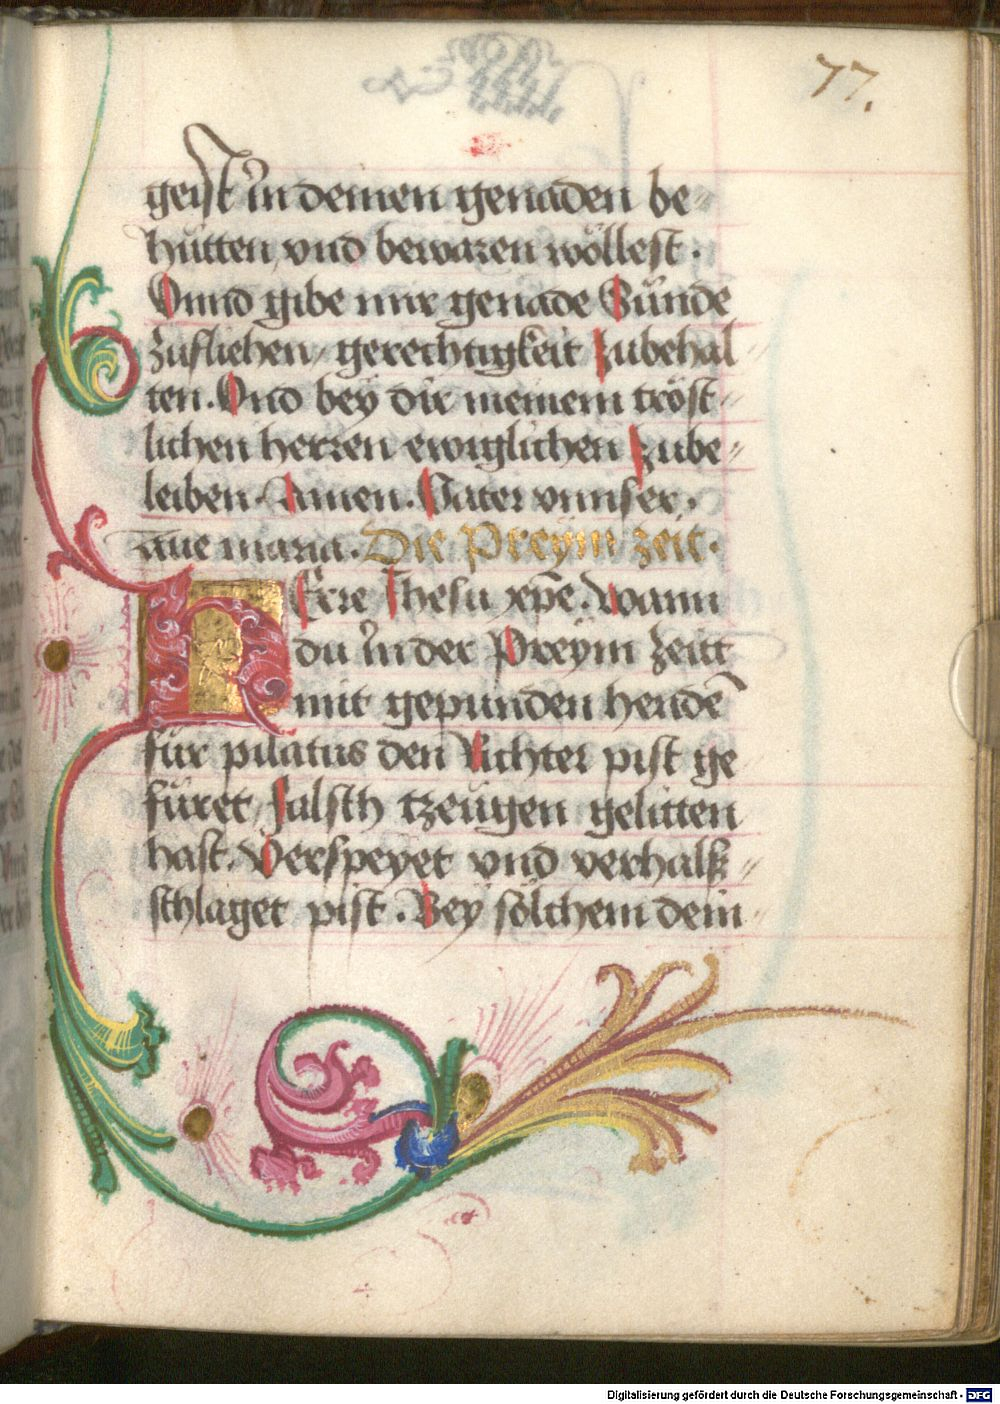 77.
geist in deinen genaden be=
hütten, vnd bewaren wöllest.
Vnnd gibe mir genade Sünde
zufliehen, gerechtigkeit zubehal=
ten. Vnd bey dir meinem tröst=
lichen herren ewiglichen zube=
leiben. Amen. Pater vnnser.
aue maria. Die Preym zeit.
HErre Jhesu xpe. Wann
du in der Preym zeitt
mit gepunden henden̄
für pilatus den Richter pist ge
füret, falsch tzeügen gelitten
hast. Verspeyet vnd verhalß=
schlaget pist. Bey sölchem dein=
Digitalisierung gefördert durch die Deutsche Forschungsgemeinschaft - DFG